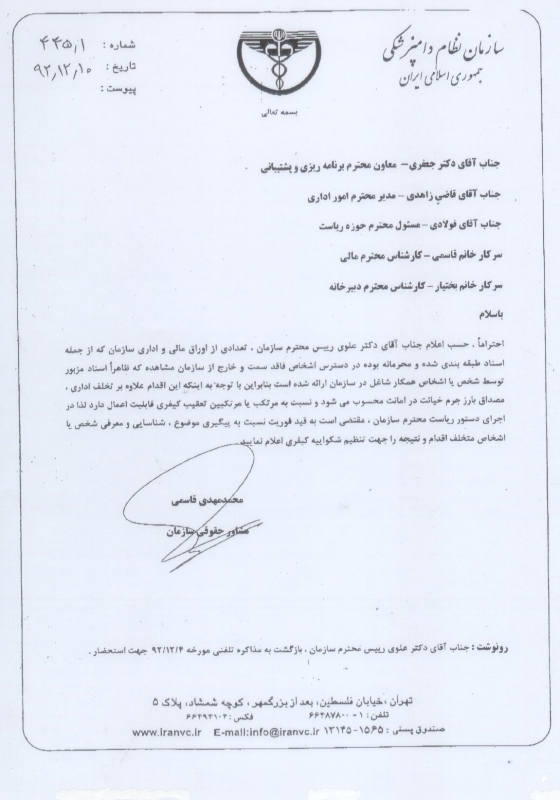 سازمان نظام دامپزشکی
جمهوری اسلامی ایران
شماره : ۴۴۵٫۱
تاریخ : ۹۲٫۱۲٫۱۰
پیوست :
بسمه تعالی
جناب آقای دکتر جعفری – معاون محترم برنامه ریزی و پشتیبانی
جناب آقای قاضی زاهدی – مدیر محترم امور اداری
جناب آقای فولادی – مسئول محترم حوزه ریاست
سرکار خانم قاسمی – کارشناس محترم مالی
سرکار خانم بختیار – کارشناس محترم دبیرخانه
باسلام
احتراماً . حسب اعلام جناب آقای دکتر علوی رییس محترم سازمان ، تعدادی از اوراق مالی و اداری سازمان که از جمله
اسناد طبقه بندی شده و محرمانه بوده در دسترس اشخاص فاقد سمت و خارج از سازمان مشاهده که ظاهراً اسناد مزبور
توسط شخص یا اشخاص همکار شاغل در سازمان ارائه شده است بنابراین با توجه به اینکه این اقدام علاوه بر تخلف اداری ،
مصداق بارز جرم خیانت در امانت محسوب می شود و نسبت به مرتکب یا مرتکبین تعقیب کیفری قابلیت اعمال دارد لذا در
اجرای دستور ریاست محترم سازمان ، مقتضی است به قید فوریت نسبت به پیگیری موضوع ، شناسایی و معرفی شخص یا
اشخاص متخلف اقدام و نتیجه را جهت تنظیم شکواییه کیفری اعلام نمایید.
محمدمهدی قاسمی
مشاور حقوقی سازمان
رونوشت : جناب آقای دکتر علوی رییس محترم سازمان ، بازگشت به مذاکره تلفنی مورخه ۹۲/۱۲/۴ جهت استحضار .
تهران ، خیابان فلسطین، بعد از بزرگمهر، کوچه شمشاد، پلاک ۵
تلفن : ۱ - ۶۶۴۸۷۸۰۰ فکس : ۶۶۴۹۴۱۰۲
صندوق پستی : ۱۵۶۵-۱۳۱۴۵ E-mail:info@iranvc.ir www.iranvc.ir